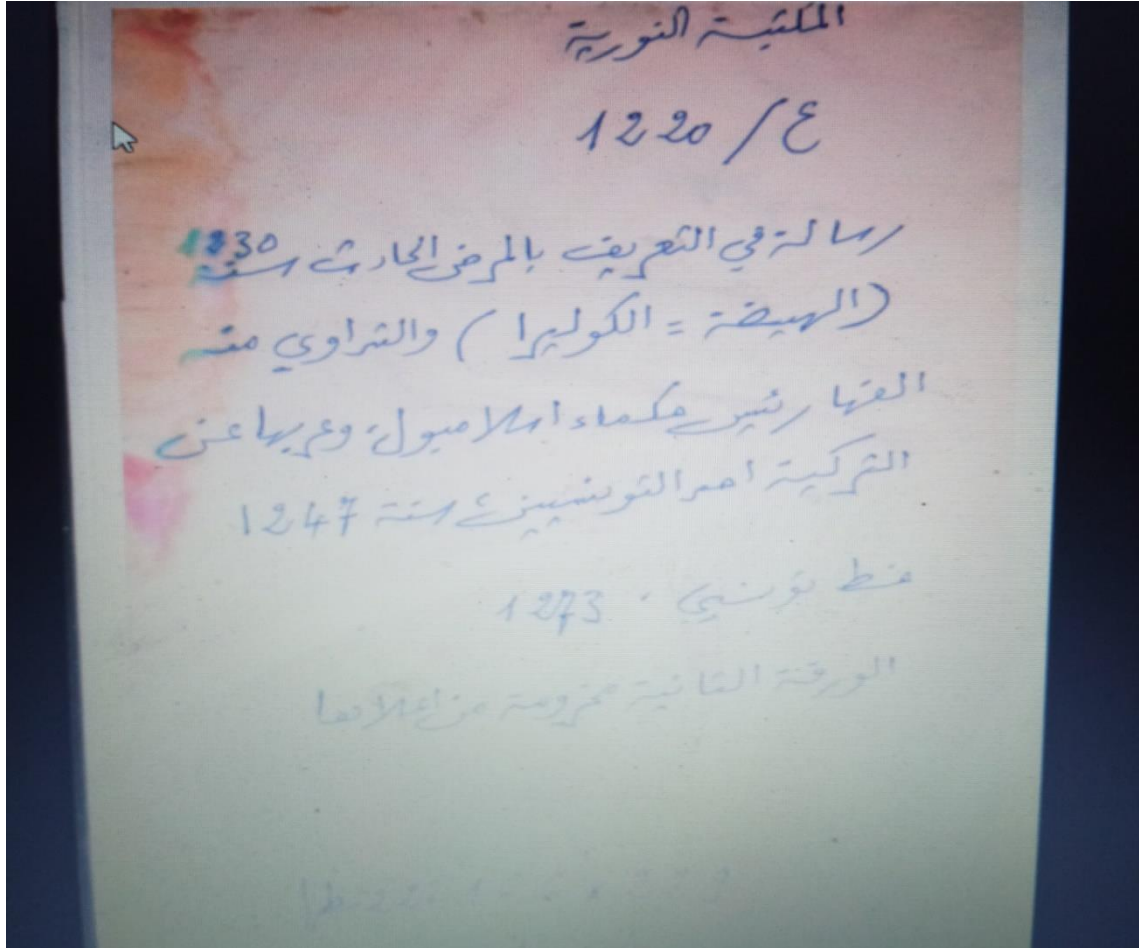 المكتبة النورية
ع / 1220
رسالة في التعريف بالمرض الحادث سنة 1230
(الهيضة = الكوليرا) والتداوي منه
الفها رئيس حكماء اسلامبول، وعربها عن
التركية احد التونسيين، سنة 1247
خط تونسي. 1273
الورقة الثانية مخرومة من اعلاها